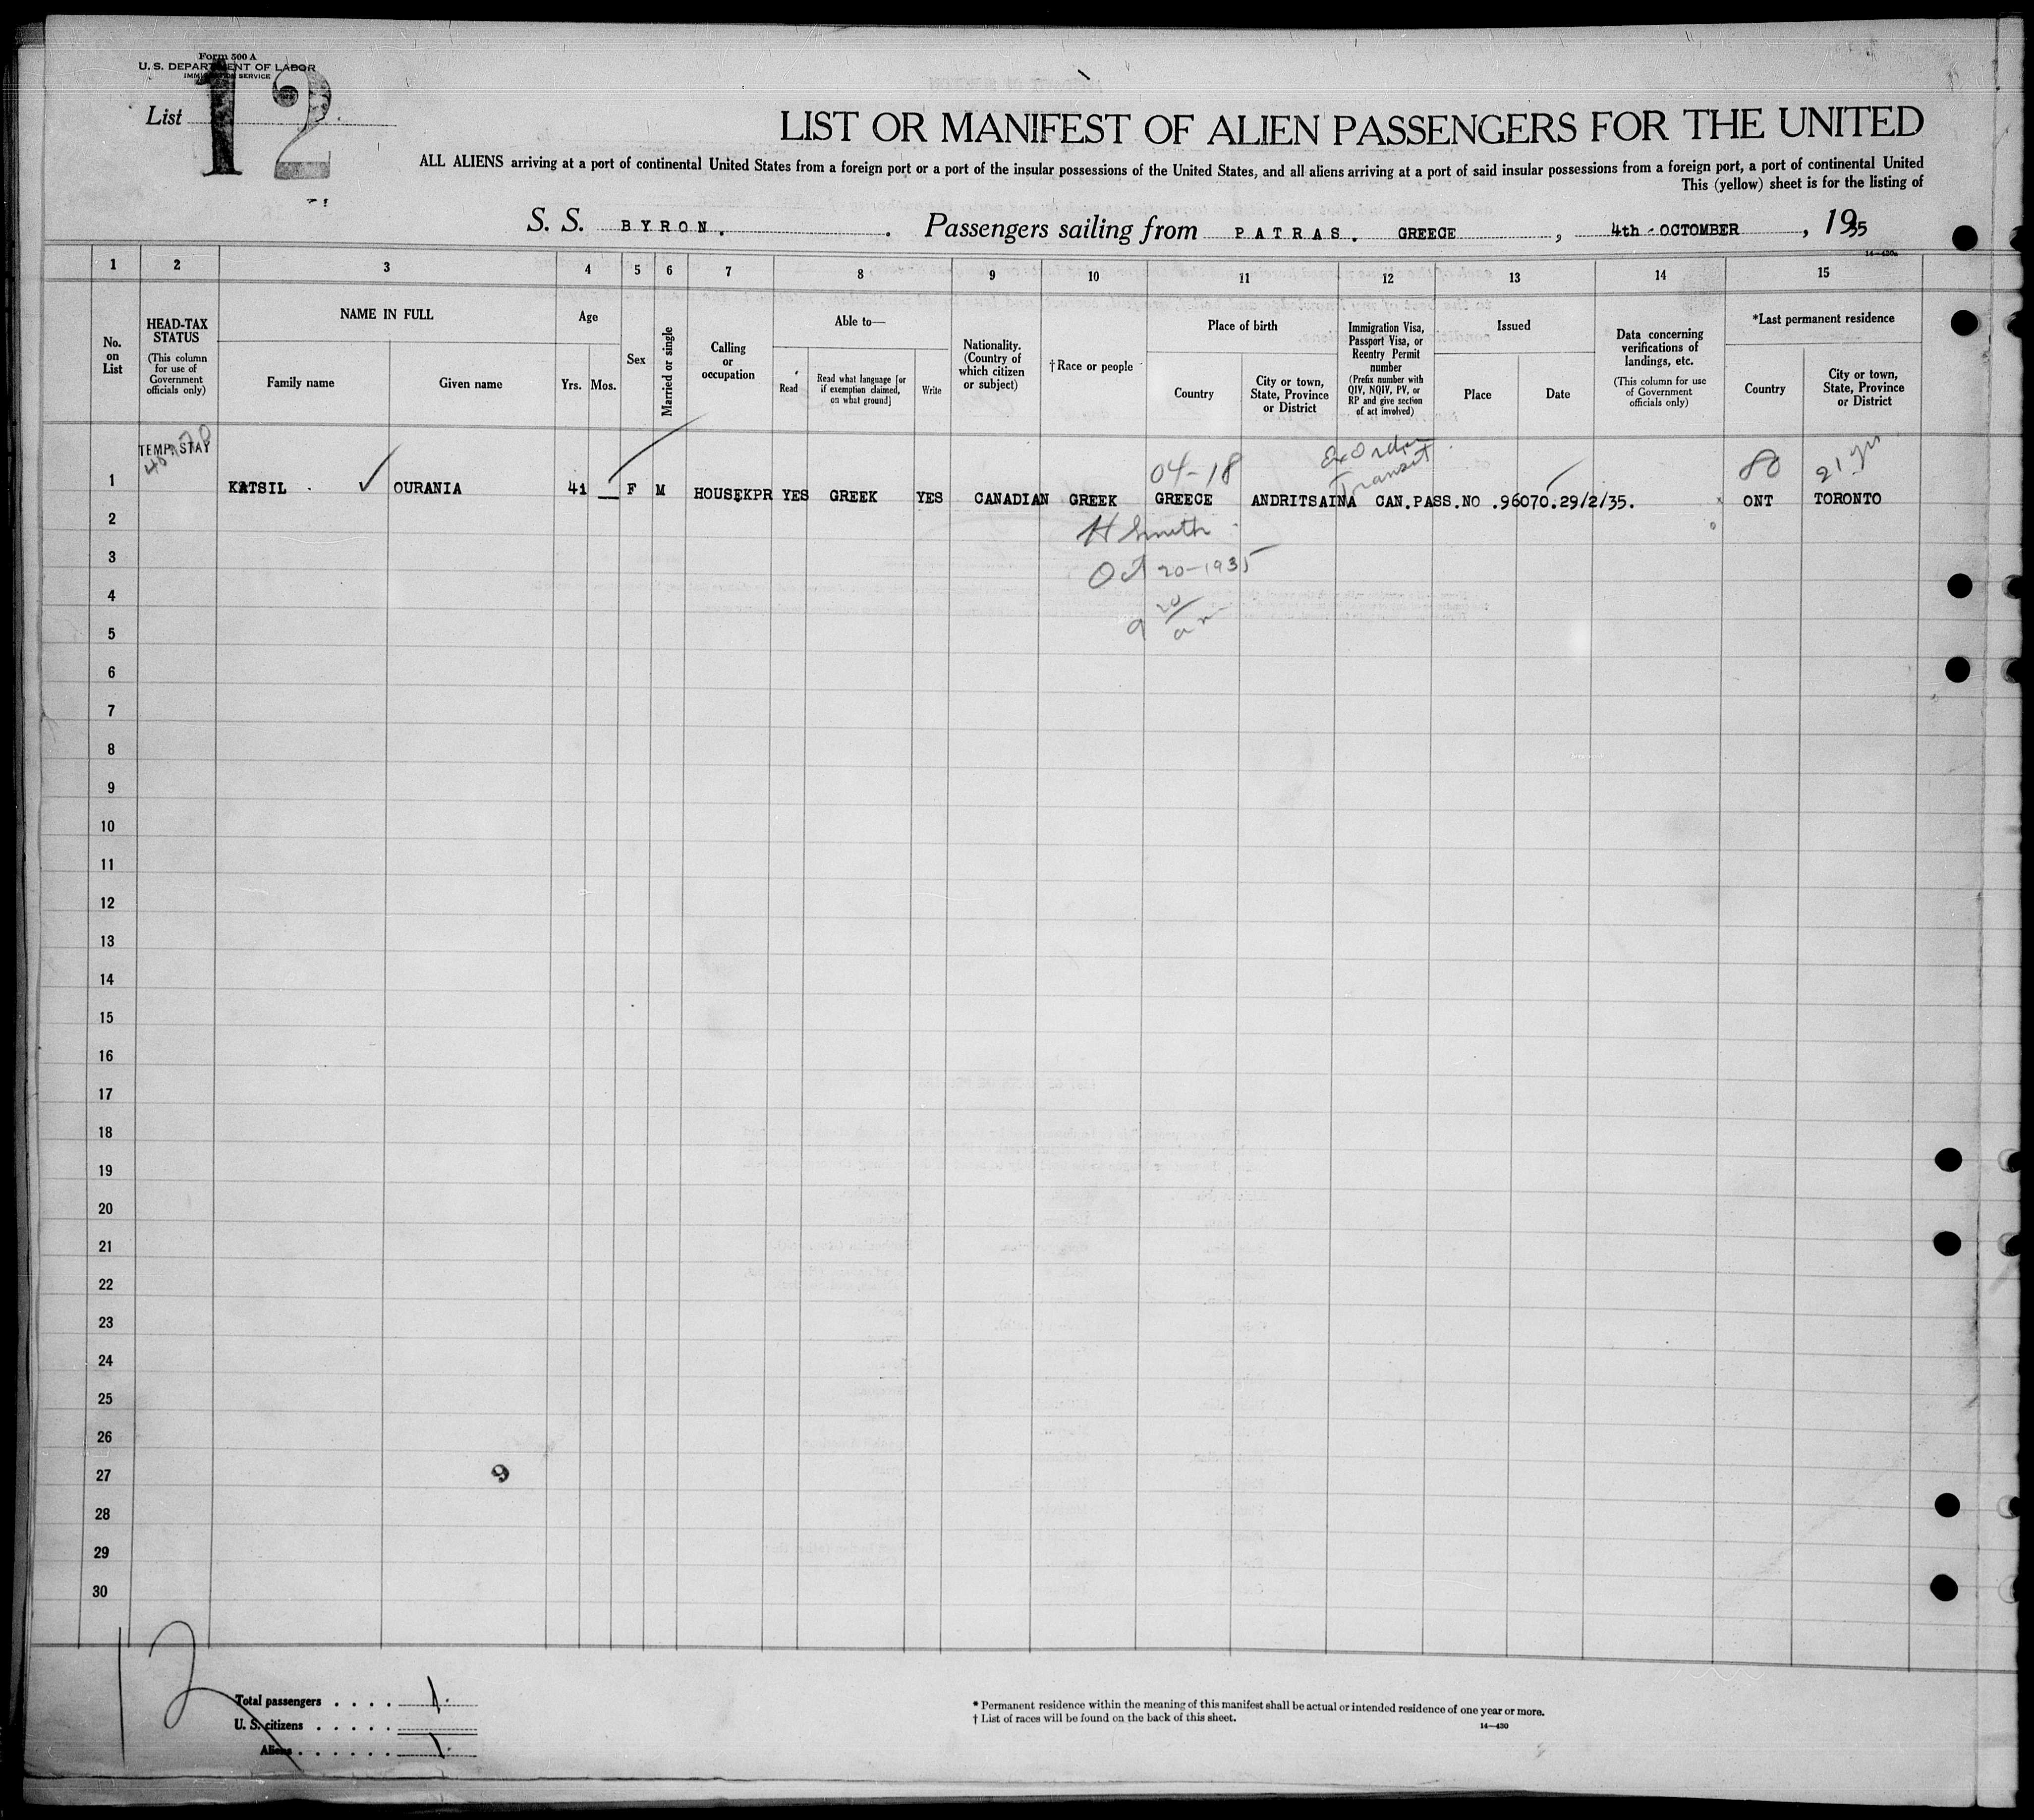 Form 500 A
U. S. DEPARTMENT OF LABOR
IMMIGRATION SERVICE
List 12
LIST OR MANIFEST OF ALIEN PASSENGERS FOR THE UNITED
ALL ALIENS arriving at a port of continental United States from a foreign port or a port of the insular possessions of the United States, and all aliens arriving at a port of said insular possessions from a foreign port, a port of continental United
This (yellow) sheet is for the listing of
S. S. BYRON. Passengers sailing from PATRAS. GREECE, 4th OCTOMBER, 1935
14—430a
1 2 3 4 5 6 7 8 9 10 11 12 13 14 15
No. on List
HEAD-TAX STATUS (This column for use of Government officials only)
NAME IN FULL
Family name
Given name
Age
Yrs. Mos.
Sex
Married or single
Calling or occupation
Able to—
Read
Read what language [or if exemption claimed, on what ground]
Write
Nationality. (Country of which citizen or subject)
† Race or people
Place of birth
Country
City or town, State, Province or District
Immigration Visa, Passport Visa, or Reentry Permit number (Prefix number with QIV, NQIV, PV, or RP and give section of act involved)
Issued
Place
Date
Data concerning verifications of landings, etc. (This column for use of Government officials only)
*Last permanent residence
Country
City or town, State, Province or District
TEMP. STAY
04-18
Transit
80
21 yrs
1 KATSIL OURANIA 41 F M HOUSEKPR YES GREEK YES CANADIAN GREEK GREECE ANDRITSAINA CAN.PASS.NO .96070.29/2/35. ONT TORONTO
2
H Smith
3
Oct 20-1935
4
9 20/am
5
6
7
8
9
10
11
12
13
14
15
16
17
18
19
20
21
22
23
24
25
26
27
9
28
29
30
12
Total passengers . . . . 1.
U. S. citizens . . . . .
Aliens . . . . . . 1.
* Permanent residence within the meaning of this manifest shall be actual or intended residence of one year or more.
† List of races will be found on the back of this sheet.
14—430